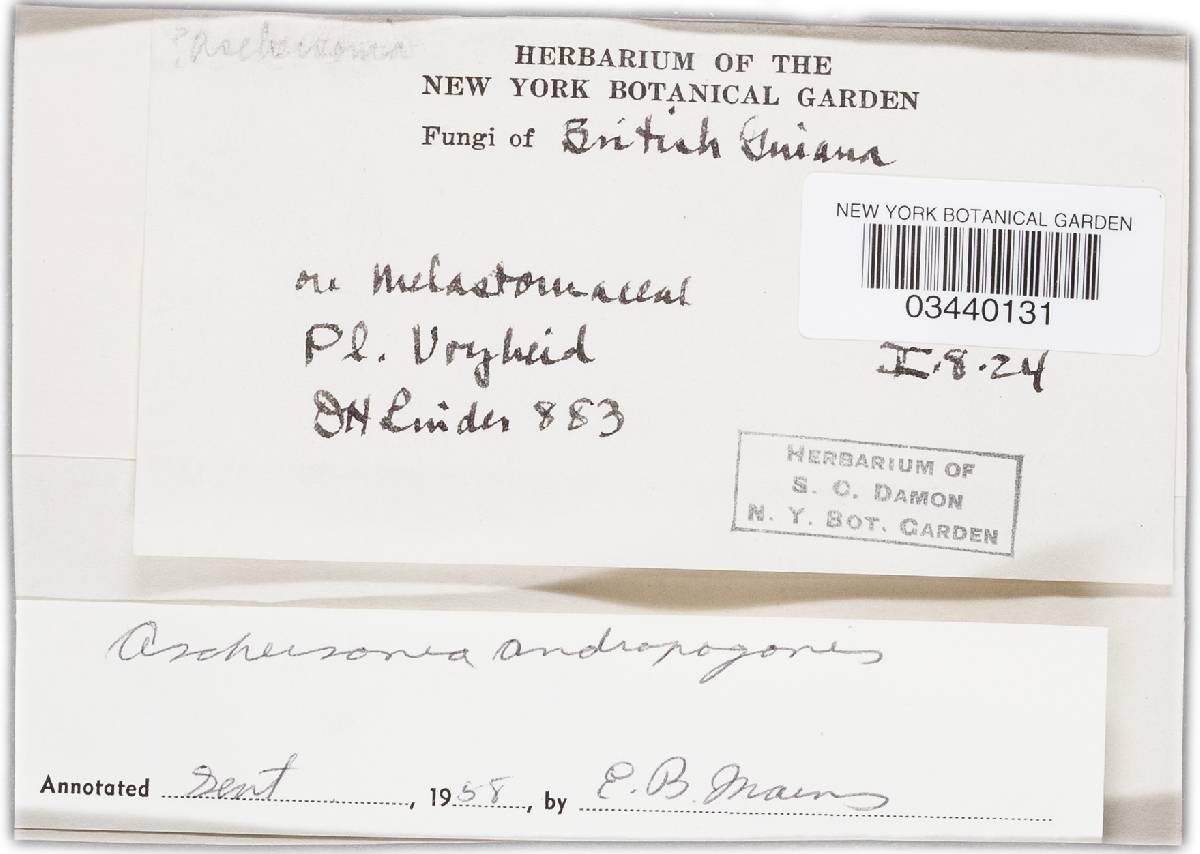 ? Aschersonia
HERBARIUM OF THE
NEW YORK BOTANICAL GARDEN
Fungi of British Guiana
NEW YORK BOTANICAL GARDEN
03440131
on Melastomaceae
Pl. Vryheid
I.8.24
DH Linder 883
HERBARIUM OF
S. C. DAMON
N. Y. BOT. GARDEN
Aschersonia andropogonis
Annotated Sept, 1958, by E. B. Mains